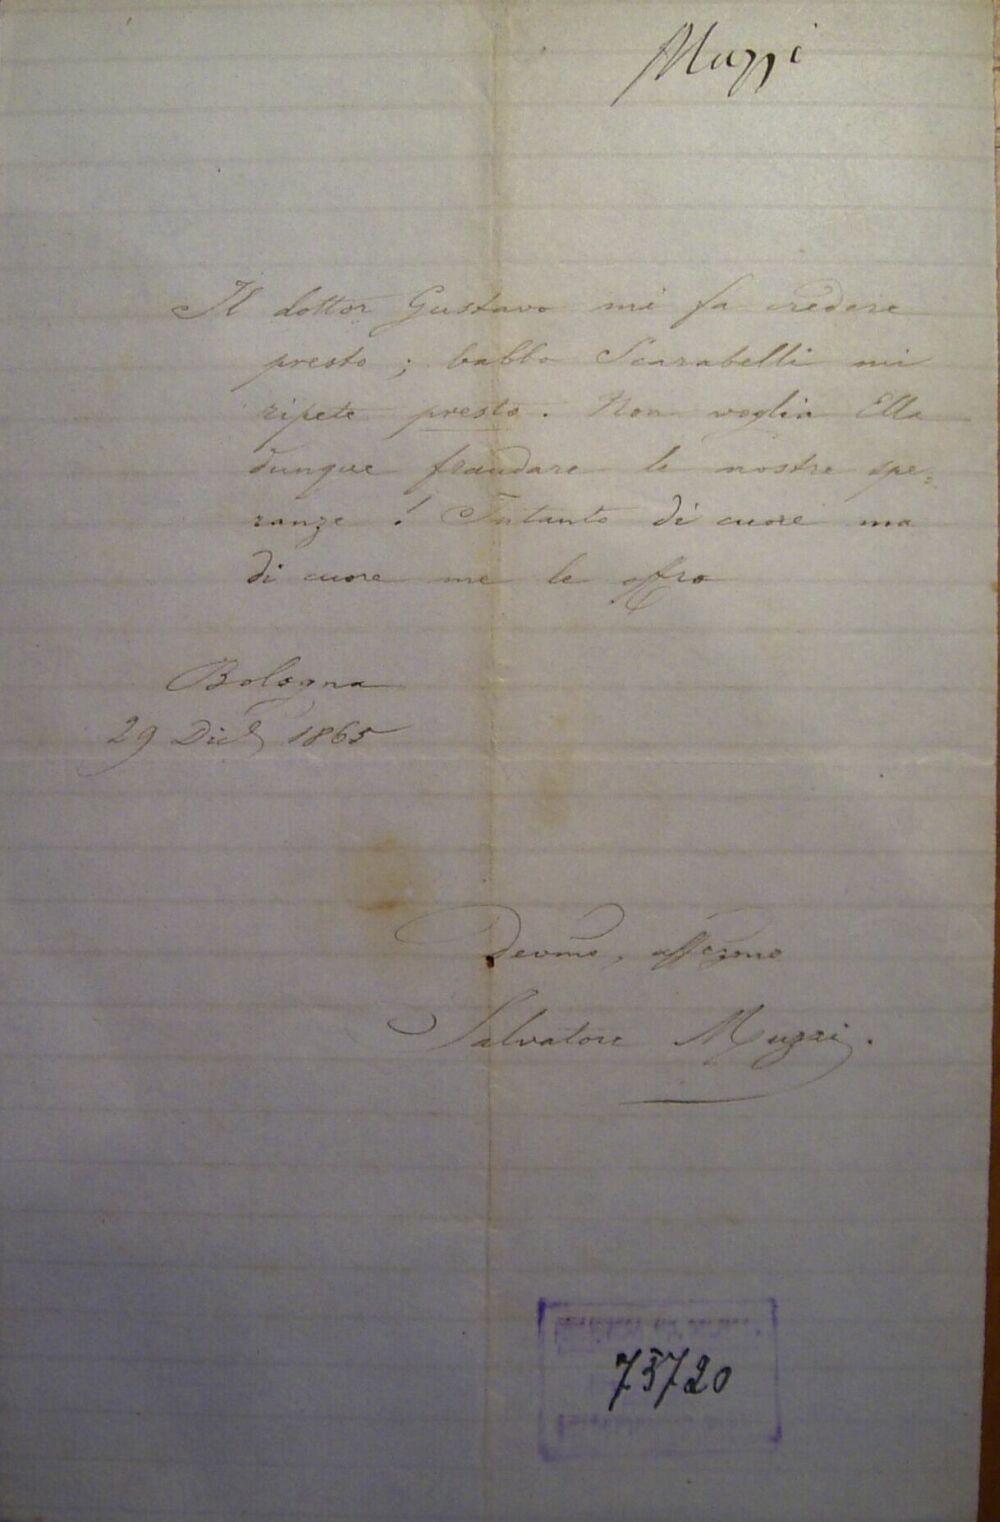 Muzzi
Il dottor Gustavo mi fa credere
presto; babbo Scarabelli mi
ripete presto. Non voglia Ella
dunque fraudare le nostre spe=
ranze! Intanto di cuore ma
di cuore me le offro
Bologna
29 Dic.e 1865
Devmo, affezmo
Salvatore Muzzi.
75720